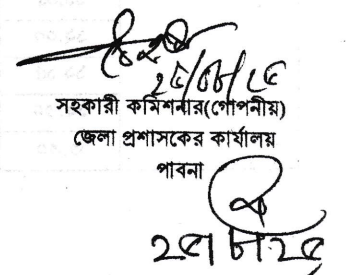 ২৫/০৮/২৫
সহকারী কমিশনার(গোপনীয়)
জেলা প্রশাসকের কার্যালয়
পাবনা
২৫।৮।২৫